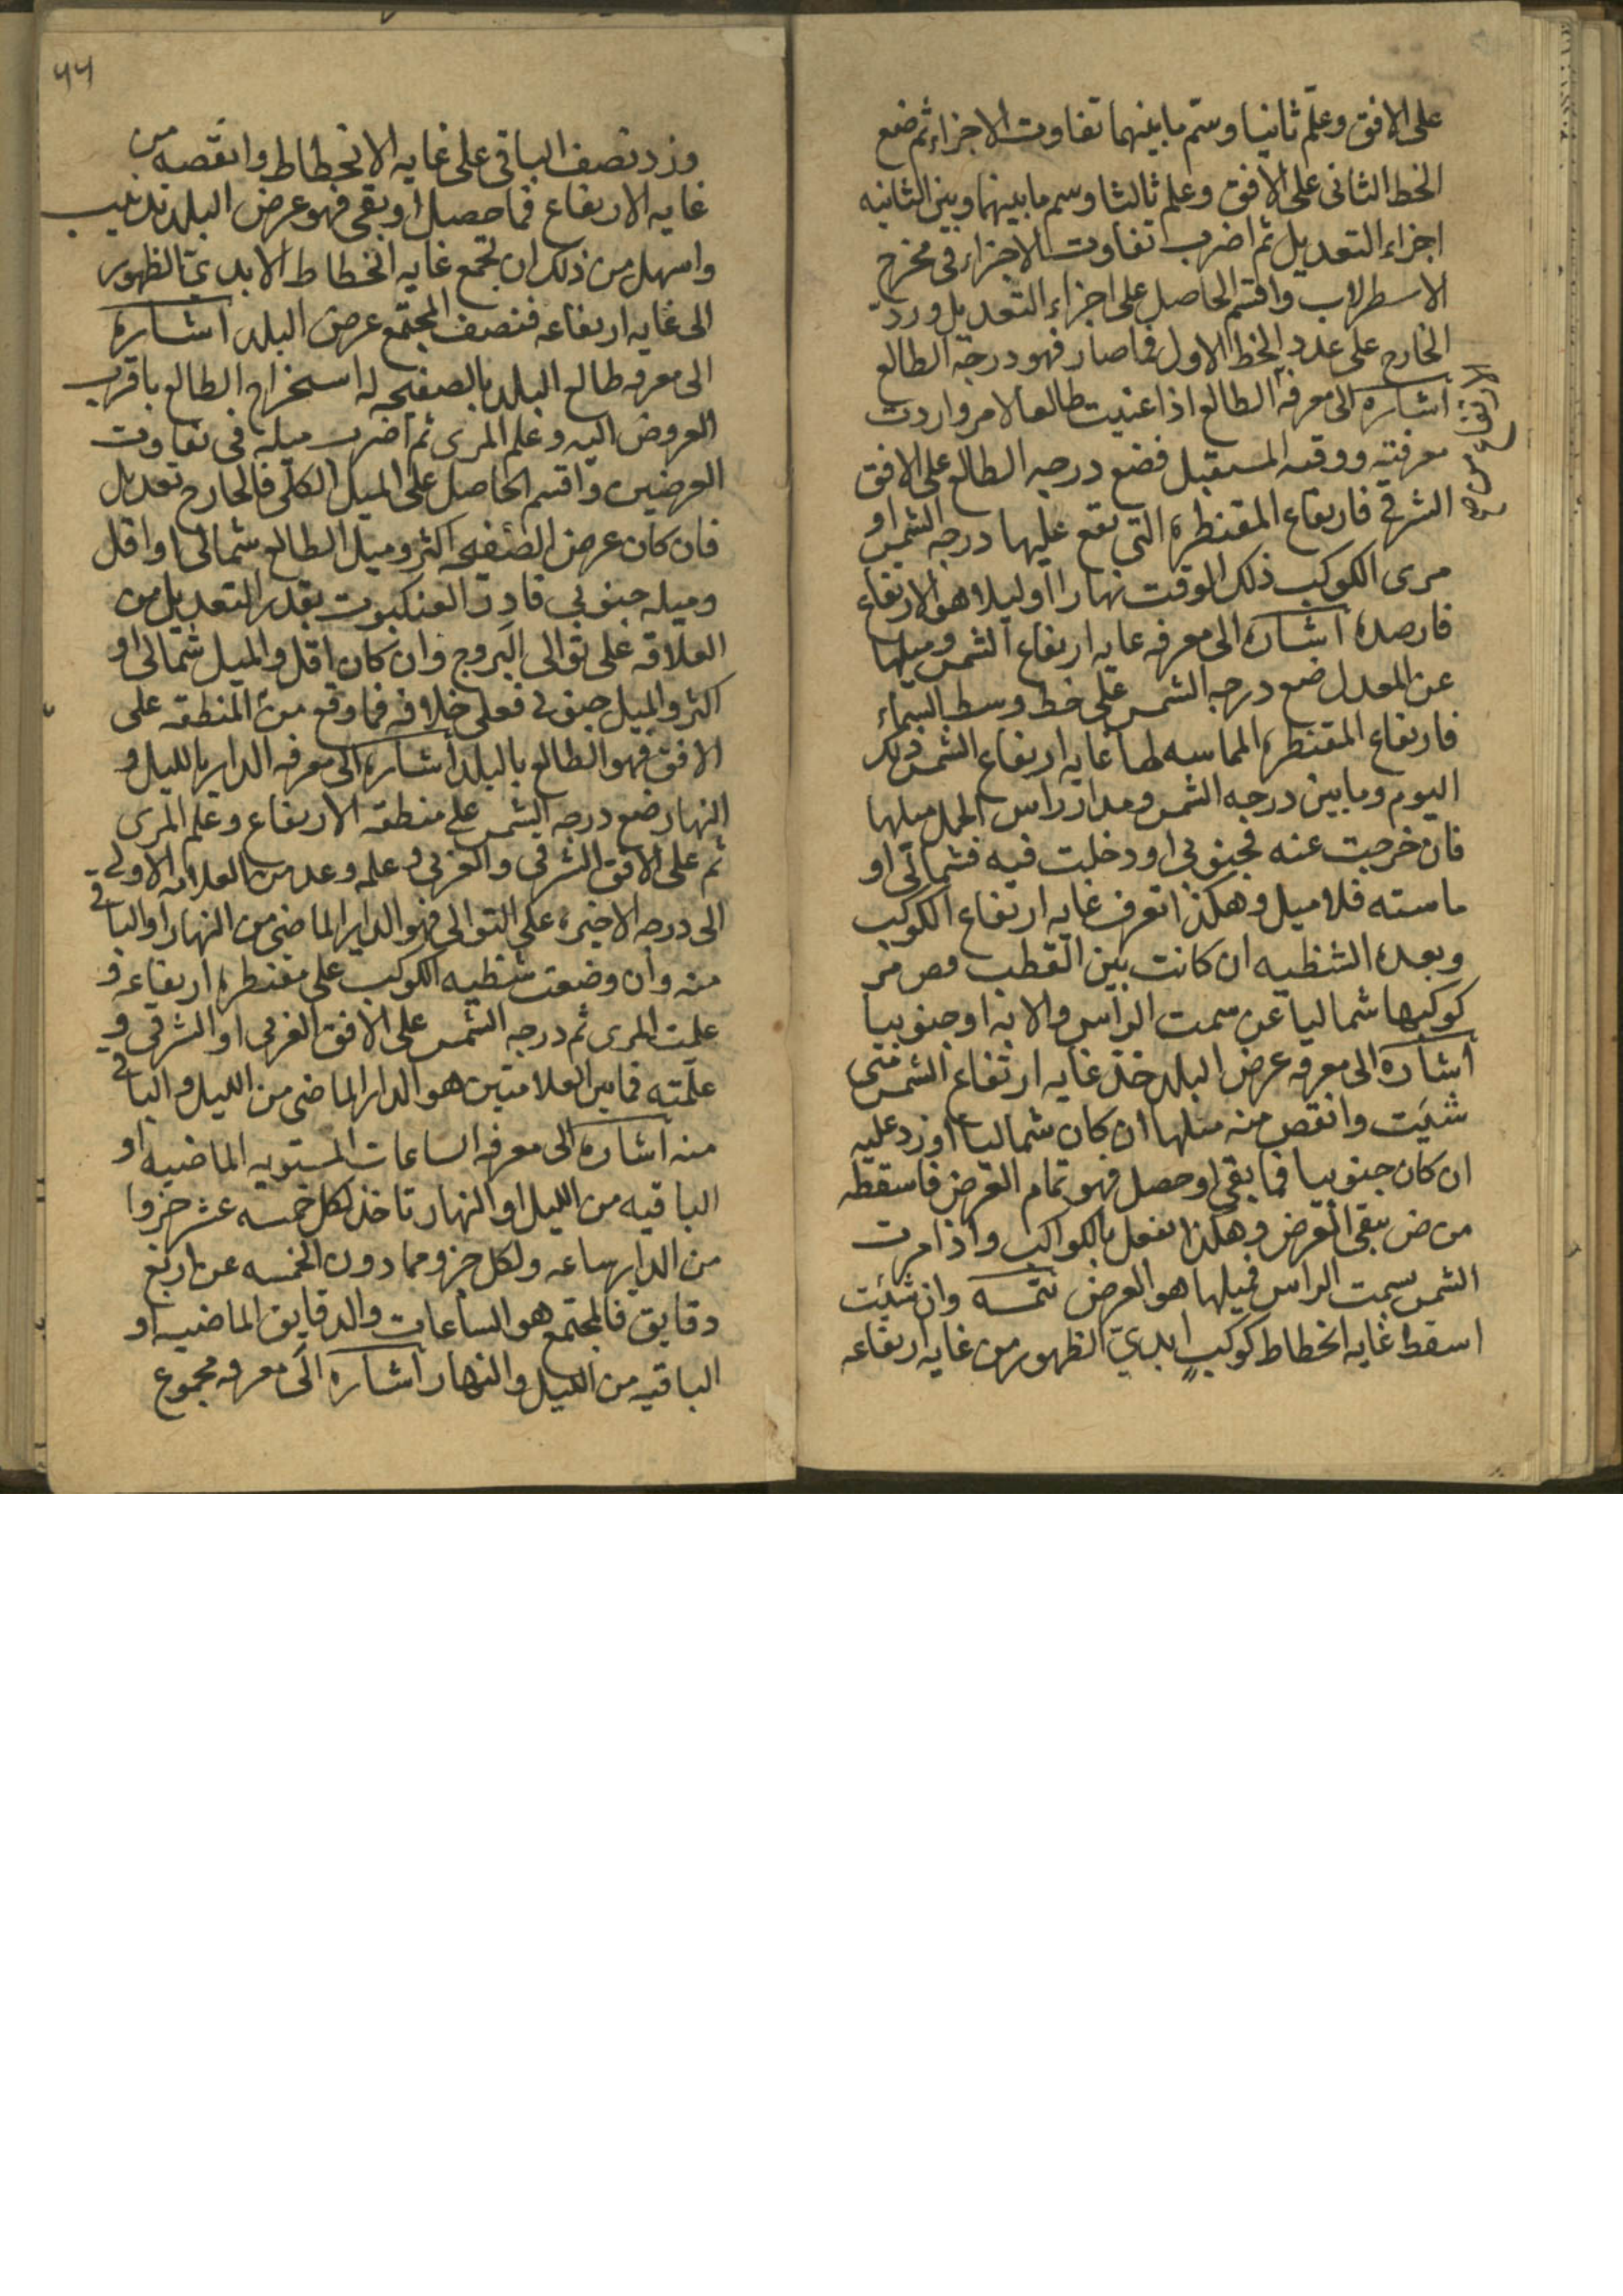 على الافق وعلّم ثانيا وسّم ما بينهما تفاوت الاجزاء ثم ضع
الخط الثانى على الافق وعلم ثالثا وسم ما بينهما وبين الثانيه
اجزاء التعديل ثم اضرب تفاوت الاجزاء فى مخرج
الاسطرلاب واقسم الحاصل على اجزاء التعديل وزد
الخارج على عدد الخط الاول فما صار فهو درجه الطالع
اشاره الى معرفه الطالع اذا عنيت طالعا لامر واردت
معرفته ووقته المستقبل فضع درجه الطالع على الافق
الشرقى فارتفاع المقنطره التى تقع عليها درجه الشمس او
مرى الكوكب ذلك الوقت نهارا او ليلا هو الارتفاع
فارصده اشاره الى معرفه غايه ارتفاع الشمس وميلها
عن المعدل ضع درجه الشمس على خط وسط السماء
فارتفاع المقنطره المماسه لها غايه ارتفاع الشمس ذلك
اليوم وما بين درجه الشمس ومدار راس الحمل ميلها
فان خرجت عنه فجنوبى او دخلت فيه فشمالى او
ماسته فلا ميل وهكذا تعرف غايه ارتفاع الكوكب
وبعده الشظيه ان كانت بين القطب وص مر
كوكبها شماليا عن سمت الراس والا به او جنوبيا
اشاره الى معرفه عرض البلد خذ غايه ارتفاع الشمس متى
شئت وانقص منه ميلها ان كان شماليا او زد عليه
ان كان جنوبيا فما بقى او حصل فهو تمام العرض فاسقطه
من ص يبقى العرض وهكذا تفعل بالكواكب واذا مرت
الشمس بسمت الراس فميلها هو العرض تتمه وان شئت
اسقط غايه انحطاط كوكب ابدىّ الظهور من غايه ارتفاعه
٤٤
وزد نصف الباقى على غايه الانحطاط وانقصه من
غايه الارتفاع فما حصل او بقى فهو عرض البلد تذنيب
واسهل من ذلك ان تجمع غايه انحطاط الابدىّ الظهور
الى غايه ارتفاعه فنصف المجتمع عرض البلد اشاره
الى معرفه طالع البلد بالصفيحه له استخراج الطالع باقرب
العروض اليه وعلم المرى ثم اضرب ميله فى تفاوت
العرضين واقسم الحاصل على الميل الكلّى فالخارج تعديل
فان كان عرض الصفيحه اكثر وميل الطالع شمالى او اقل
وميله جنوبى فادر العنكبوت بقدر التعديل من
العلاقه على توالى البروج وان كان اقل والميل شمالى او
اكثر والميل جنوبى فعلى خلافه فما وقع من المنطقه على
الافق فهو الطالع بالبلد اشاره الى معرفه الداير بالليل و
النهار ضع درجه الشمس على منطقه الارتفاع وعلم المرى
ثم على الافق الشرقى والغربى وعلمه وعد من العلامه الاولى
الى درجه الاخيره على التوالى فهو الداير الماضى من النهار او الباقى
منه وان وضعت شظيه الكوكب على مقنطره ارتفاعه و
علمت المرى ثم درجه الشمس على الافق الغربى او الشرقى و
علّمته فما بين العلامتين هو الداير الماضى من الليل والباقى
منه اشاره الى معرفه الساعات المستويه الماضيه او
الباقيه من الليل او النهار تاخذ لكل خمسه عشر جزوا
من الداير ساعه ولكل جزو مما دون الخمسه عشر اربع
دقايق فالمجتمع هو الساعات والدقايق الماضيه او
الباقيه من الليل والنهار اشاره الى معرفه مجموع